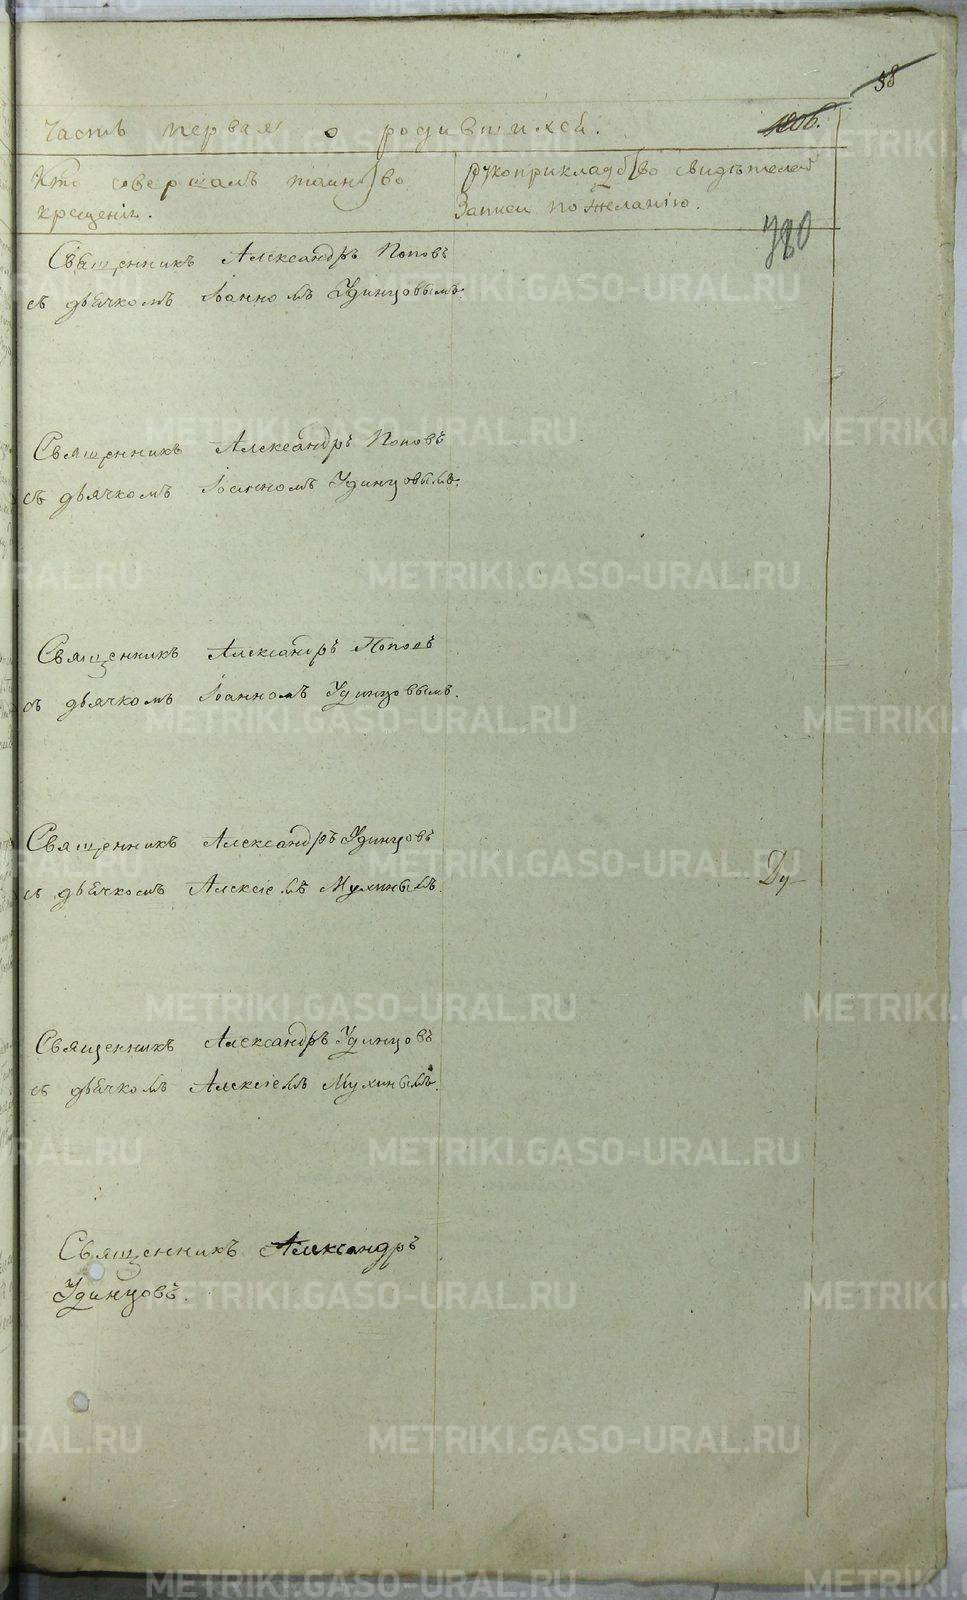 58
Часть первая о родившихся.
Кто совершалъ таинство
крещенія.
Рукоприкладство свидѣтелей
записи по желанію.
780
Священникъ Александръ Поповъ
съ дьячкомъ Іоанномъ Удинцовымъ.
Священникъ Александръ Поповъ
съ дьячкомъ Іоанномъ Удинцовымъ.
Священникъ Александръ Поповъ
съ дьячкомъ Іоанномъ Удинцовымъ.
Священникъ Александръ Удинцовъ
съ дьячкомъ Алексіемъ Мухинымъ.
Ду
Священникъ Александръ Удинцовъ
съ дьячкомъ Алексіемъ Мухинымъ.
Священникъ Александръ
Удинцовъ.
METRIKI.GASO-URAL.RU